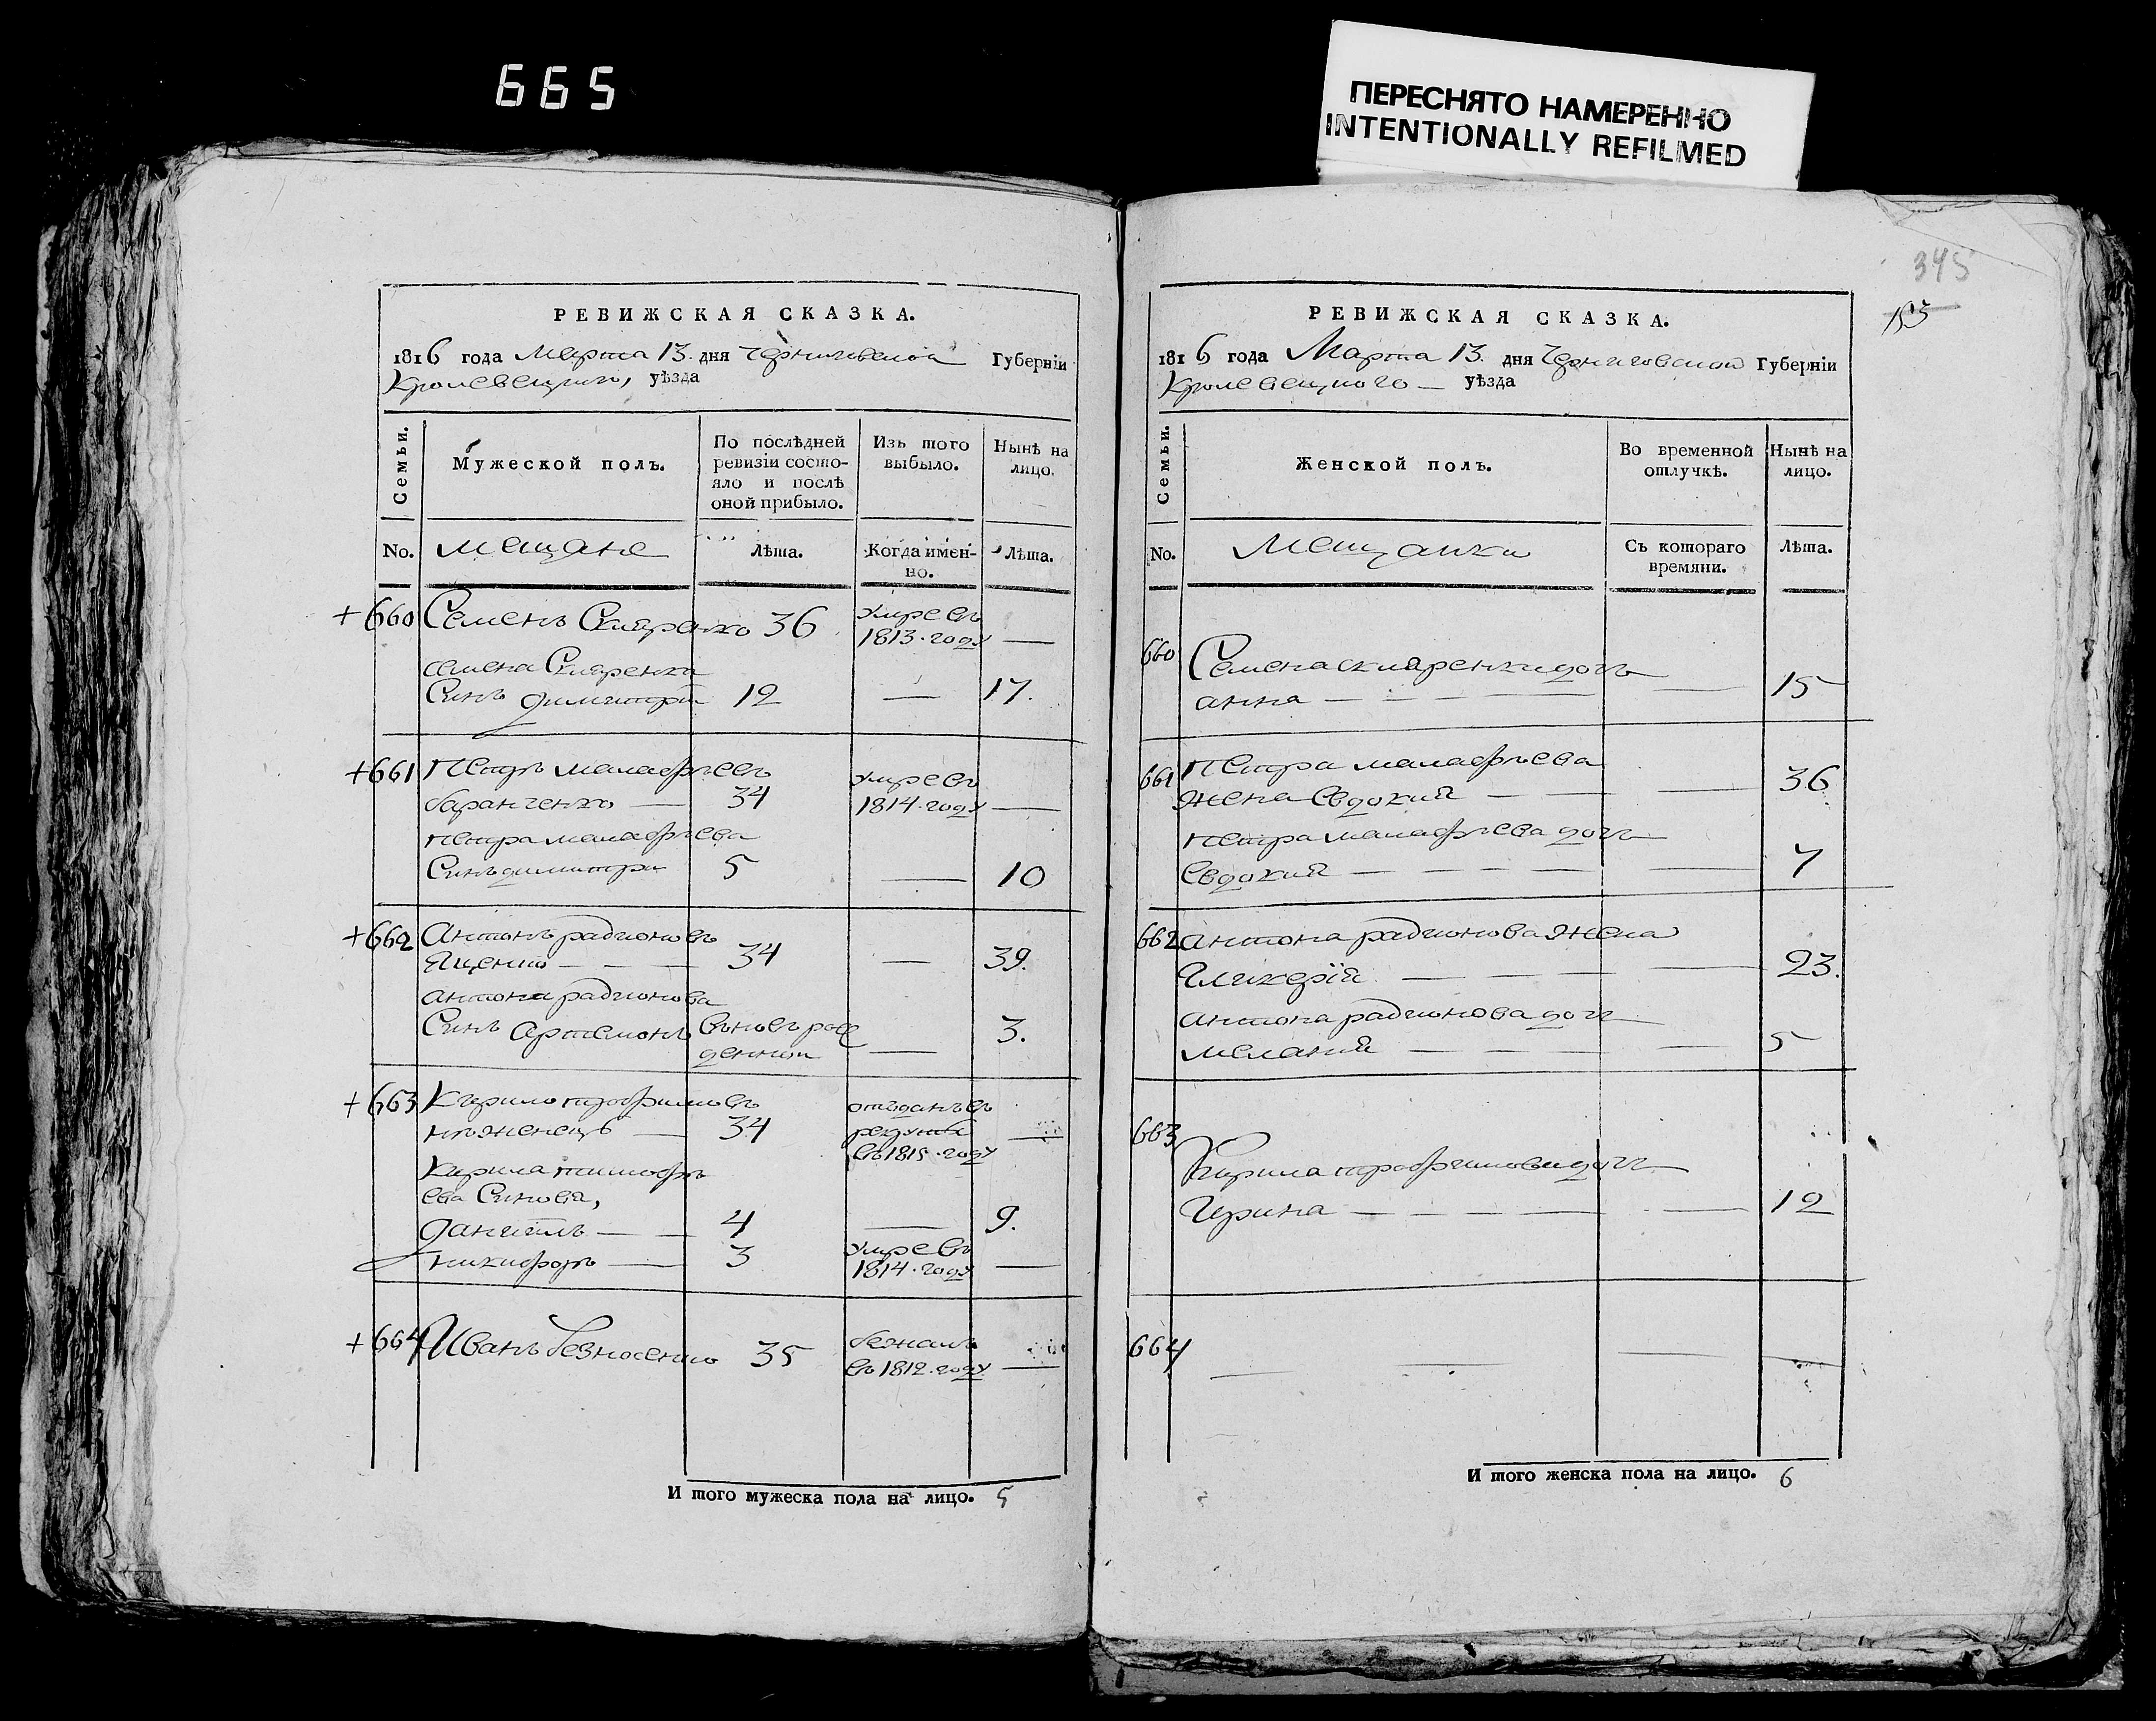 665
ПЕРЕСНЯТО НАМЕРЕННО
INTENTIONALLY REFILMED
РЕВИЖСКАЯ СКАЗКА.
1816 года Марта 13. дня Черниговской Губерніи
Кролевецкого, уѣзда
Семьи.
Мужеской полъ.
По послѣдней
ревизіи состо-
яло и послѣ
оной прибыло.
Изъ того
выбыло.
Нынѣ на
лицо.
No.
мещане
Лѣта.
Когда имен-
но.
Лѣта.
+660 Семенъ Скляренко 36 умре въ
1813 · году —
семена Скляренка
Синъ димитрій 12 — 17.
+661 Петръ малафѣевъ умре въ
баранченко — 34 1814 · году —
петра малафѣева
Синъ димитри 5 — 10
+662 Антонъ радионовъ
Яценко — — 34 — 39.
антона радионова
Синъ Артемонъ вновь рож
денний — 3.
+663 Кирило трофимовъ отъданъ въ
нѣженецъ — 34 рекруты —
въ 1815 · году
Кирила тимофѣ
ева Синовя,
даниилъ — — 4 — 9.
никифоръ — 3 умре въ
1814 · году —
+664 Иванъ безносенко 35 бежалъ
въ 1812 · году —
И того мужеска пола на лицо. 5
345
РЕВИЖСКАЯ СКАЗКА.
1816 года Марта 13. дня Черниговской Губерніи
Кролевецкого — уѣзда
Семьи.
Женской полъ.
Во временной
отлучкѣ.
Нынѣ на
лицо.
No.
Мещанки
Съ котораго
времяни.
Лѣта.
660 Семена скляренки дочь
анна — — — — — 15
661 Петра малафѣева
жена Евдокия — — — 36
петра малафѣева дочь
Евдокия — — — — — — 7
662 антона радионова жена
Гликерїя — — — — 23.
антона радионова дочь
мелания — — — — 5
663
Кирила трофимова дочь
Ирина — — — — — 12
664 — — — —
И того женска пола на лицо. 6